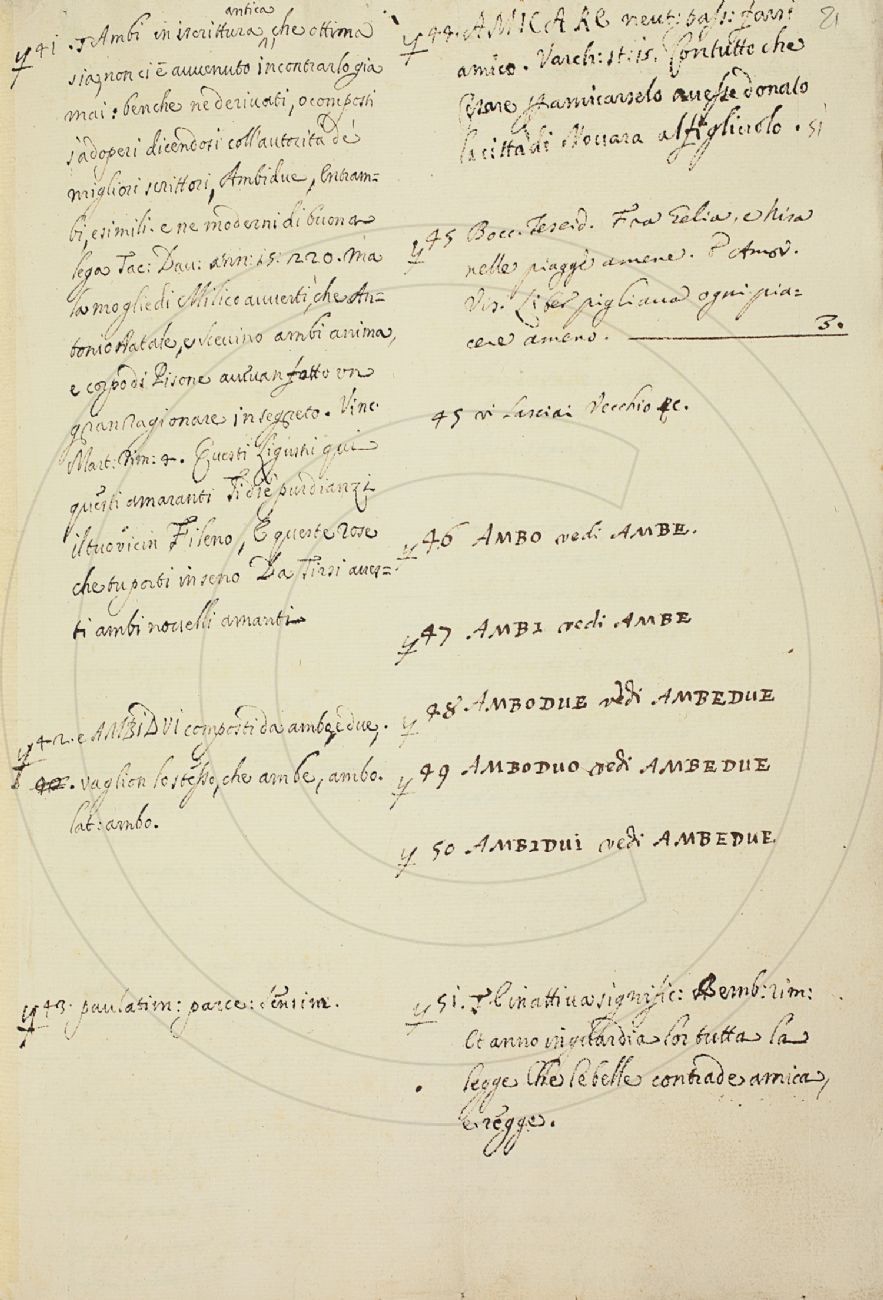 antica
41. Ambi in iscrittura che ottima
sia, non ci è avvenuto incontrarlo gia
mai: benche ne derivati, o composti
s'adoperi dicendosi coll'autorità de
migliori scrittori, Ambidue, Entram=
bi, e simili. e ne moderni di buona
lega Tac: Dav: ann: 15: 220. Ma
la moglie di Milico avvertì, che An=
tonio Natale, e Scevino ambi anima,
e corpo di Pisone avevan fatto un
gran ragionare in segreto. Vinc.
Mart: Rim: 4. Questi Ligustri qui
questi amaranti Ti diè pur dianzi
il tuo vicin Fileno, E queste rose
che tu porti in seno Da Tirsi aves=
ti ambi novelli amanti
42. e AMBIDUI composti da ambe, e due,
vaglion lo stesso, che ambe, ambo.
lat: ambo.
43. paulatim: parce: sensim.
21
44. AMICARE neut: pass: farsi
amico. Varch: st: 15. Contutto che
Cesare per amicarselo avesse donato
la città di Novara al figliuolo. 51
45 Bocc. Teseid. Fra Eelia, e Nisa
nelle piaggi amene. E Amor.
Vis. Liber pigliava ogni pia=
cere ameno. 3.
45 vi lasciai Vecchio &c.
46 AMBO vedi AMBE.
47 AMBI vedi AMBE
48 AMBODUE vedi AMBEDUE
49 AMBODUO vedi AMBEDUE
50 AMBIDUI vedi AMBEDUE
51. E in attiva signific: Bemb: rim:
Et anno in guardia lor tutta la
legge Che le belle contrade amica,
e regge.